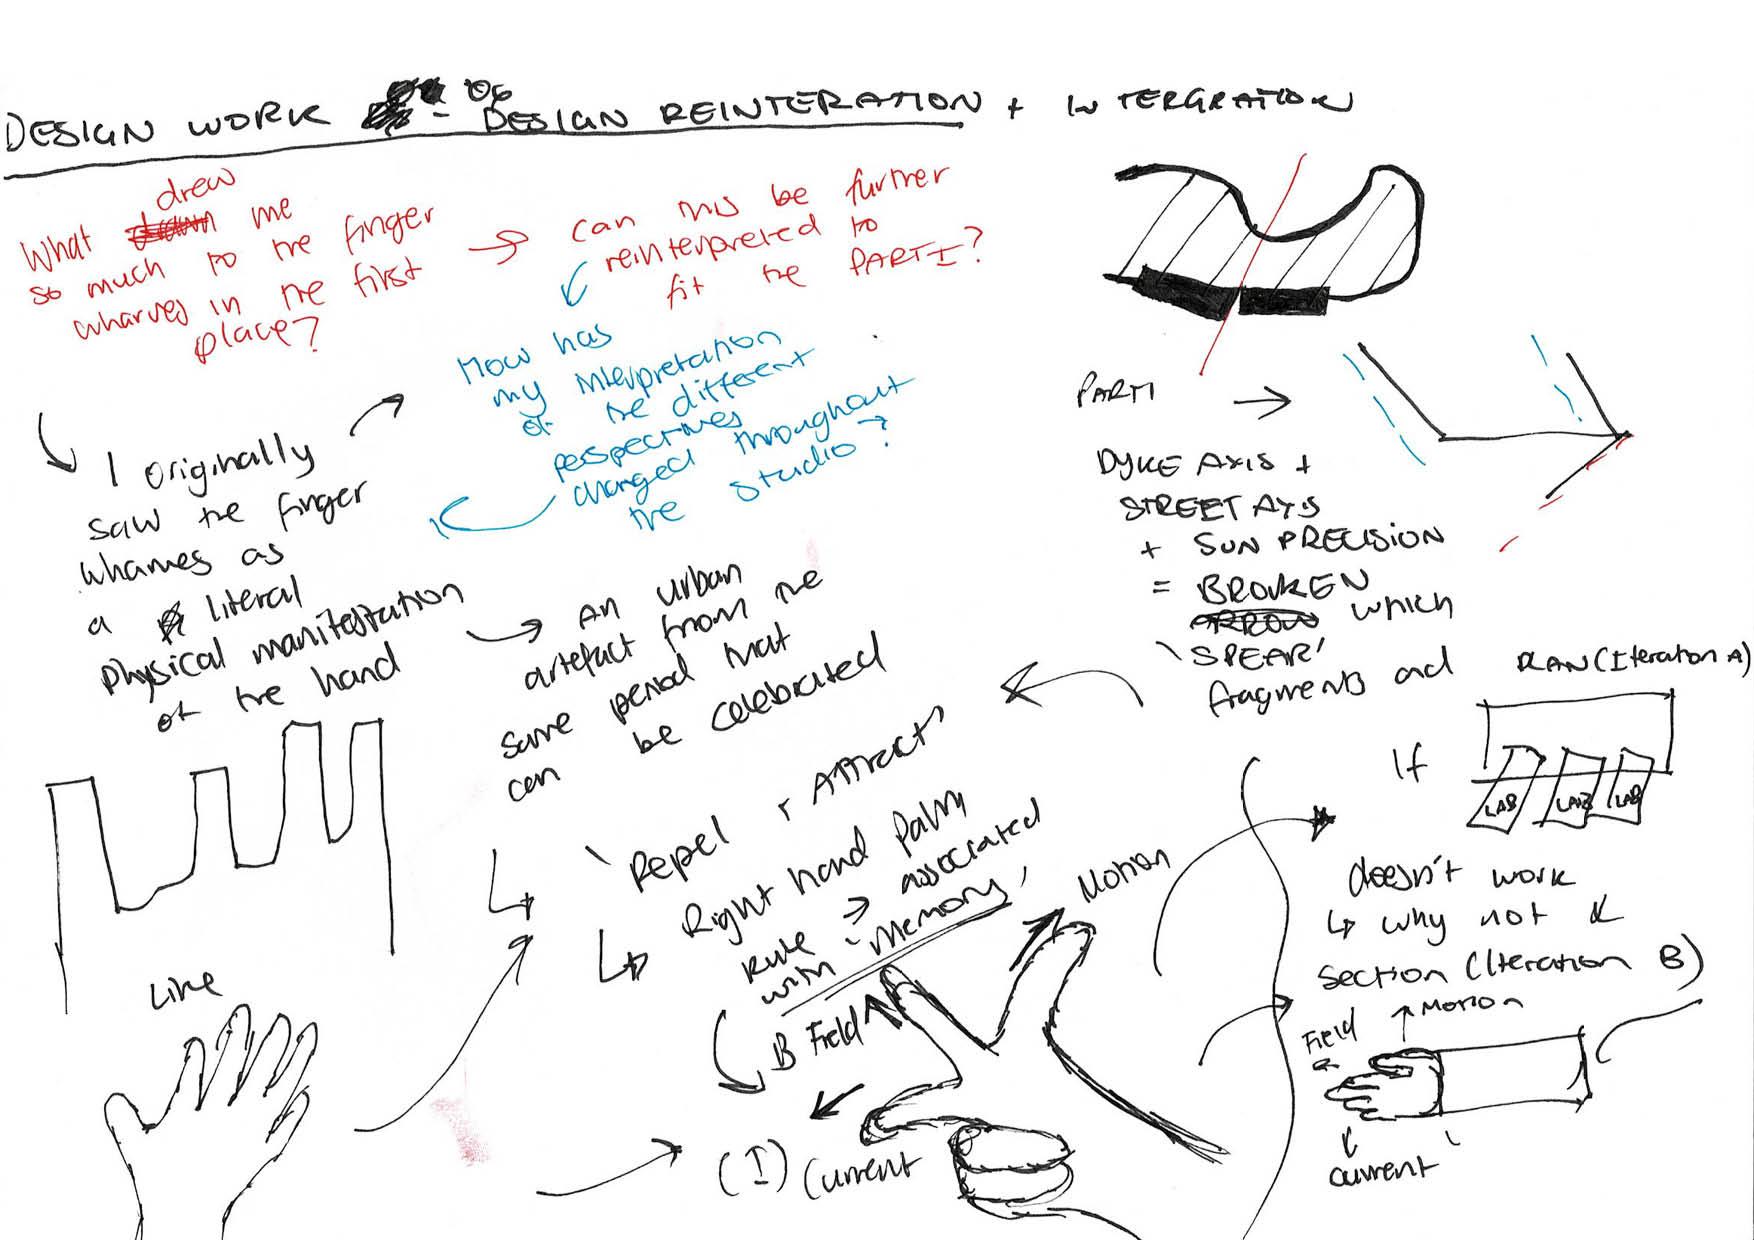 DESIGN WORK 06 - DESIGN REINTERATION + INTERGRATION
drew
What me
so much to the finger
wharves in the first
place?
can this be further
reinterpreted to
fit the PARTI?
How has
my interpretation
of the different
perspectives
changed throughout
the studio?
I originally
saw the finger
wharves as
a literal
physical manifestation
of the hand
An urban
artefact from the
same period that
can be celebrated
LIKE
'Repel + Attract'
Right hand palm
rule → associated
with 'Memory'
Motion
B Field
(I) Current
PARTI
DYKE AXIS +
STREET AXIS
+ SUN PRECISION
= BROKEN
ARROW which
'SPEAR'
fragments and
PLAN (Iteration A)
If
LAB LAB LAB
doesn't work
↳ why not &
Section (Iteration B)
Field
↑ Motion
current